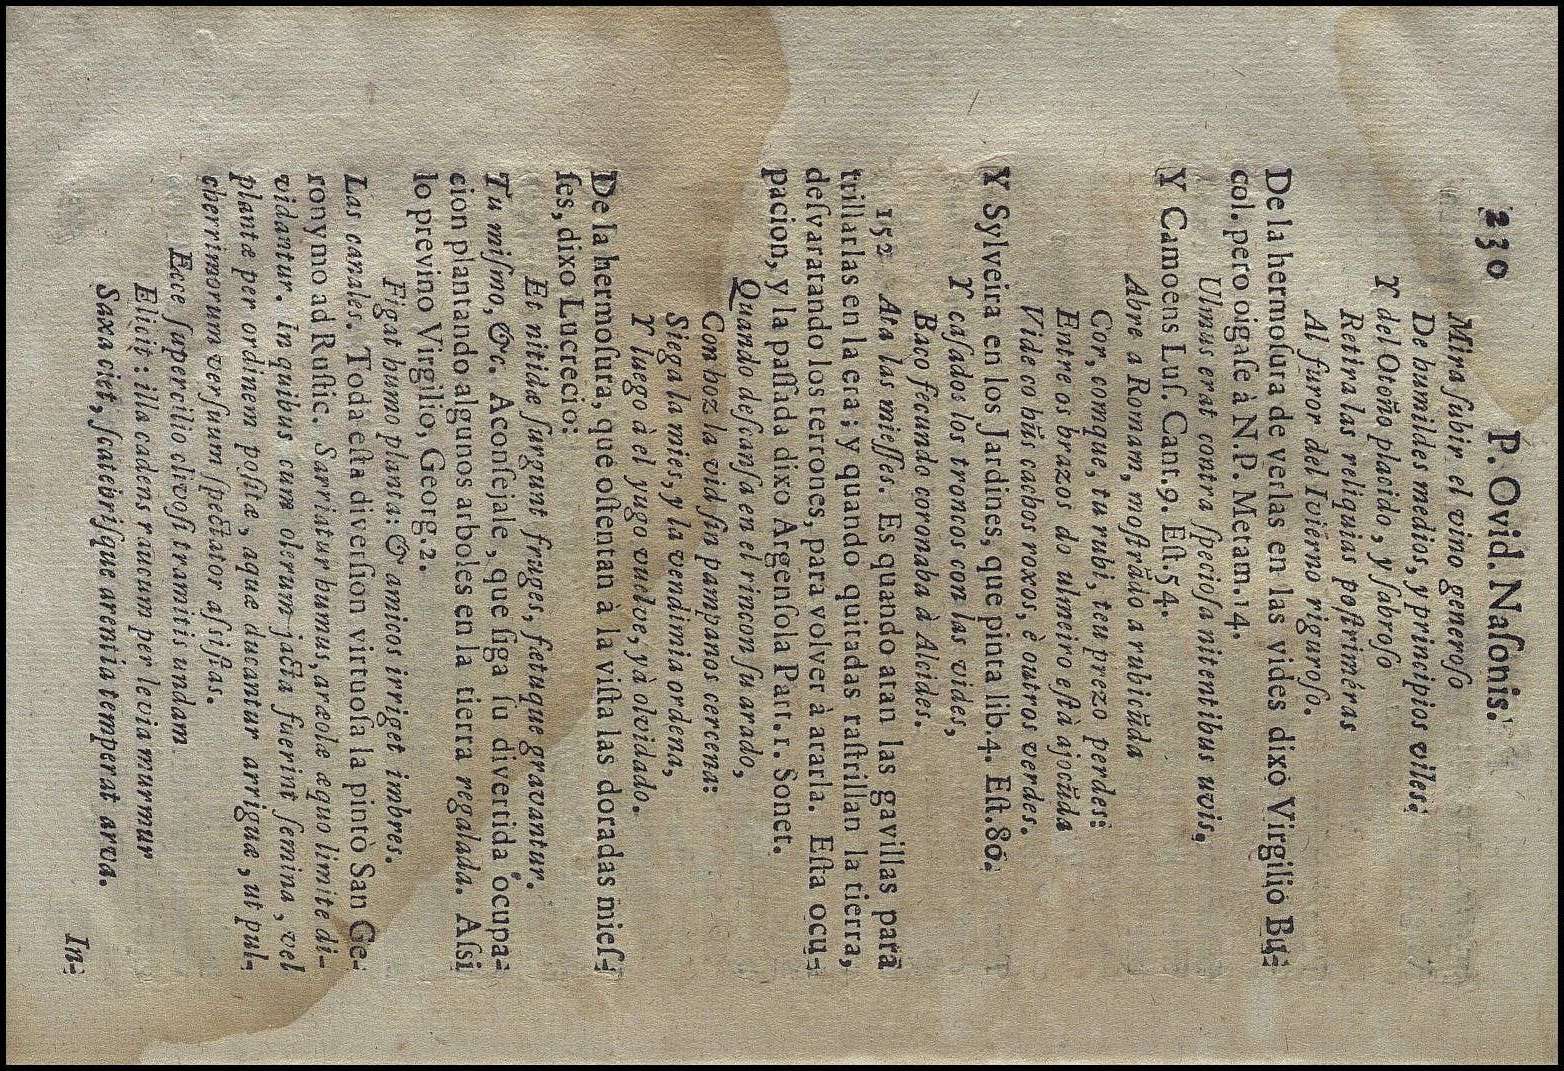 230 P. Ovid. Naſonis.
Mira ſubir el vino generoſo
De humildes medios, y principios viles:
Y del Otoño placido, y ſabroſo
Retira las reliquias poſtrimeras
Al furor del Ivierno riguroſo.
De la hermoſura de verlas en las vides dixo Virgilio Bu-
col. pero oigaſe à N. P. Metam. 14.
Ulmus erat contra ſpecioſa nitentibus uvis,
Y Camoens Luſ. Cant. 9. Eſt. 54.
Abre a Romam, moſtrãdo a rubicũda
Cor, comque, tu rubi, teu prezo perdes:
Entre os brazos do ulmeiro eſtà ajocũda
Vide co hũs cachos roxos, è outros verdes.
Y Sylveira en los Jardines, que pinta lib. 4. Eſt. 80.
Y caſados los troncos con las vides,
Baco fecundo coronaba à Alcides.
152 Ata las mieſſes. Es quando atan las gavillas para
trillarlas en la era; y quando quitadas raſtrillan la tierra,
deſvaratando los terrones, para volver à ararla. Eſta ocu-
pacion, y la paſſada dixo Argenſola Part. 1. Sonet.
Quando deſcanſa en el rincon ſu arado,
Con hoz la vid ſin pampanos cercena:
Siega la mies, y la vendimia ordena,
Y luego à el yugo vuelve, yà olvidado.
De la hermoſura, que oſtentan à la viſta las doradas mieſ-
ſes, dixo Lucrecio:
Et nitidæ ſurgunt fruges, fœtuque gravantur.
Tu miſmo, &c. Aconſejale, que ſiga ſu divertida ocupa-
cion plantando algunos arboles en la tierra regalada. Aſsi
lo previno Virgilio, Georg. 2.
Figat humo planta: & amicos irriget imbres.
Las canales. Toda eſta diverſion virtuoſa la pintò San Ge-
ronymo ad Ruſtic. Sarriatur humus, aræolæ æquo limite di-
vidantur. In quibus cum olerum jacta fuerint ſemina, vel
plantæ per ordinem poſitæ, aquæ ducantur arriguæ, ut pul-
cherrimorum verſuum ſpectator aſsiſtas.
Ecce ſupercilio clivoſi tramitis undam
Elicit: illa cadens raucum per levia murmur
Saxa ciet, ſcatebriſque arentia temperat arva.
In-